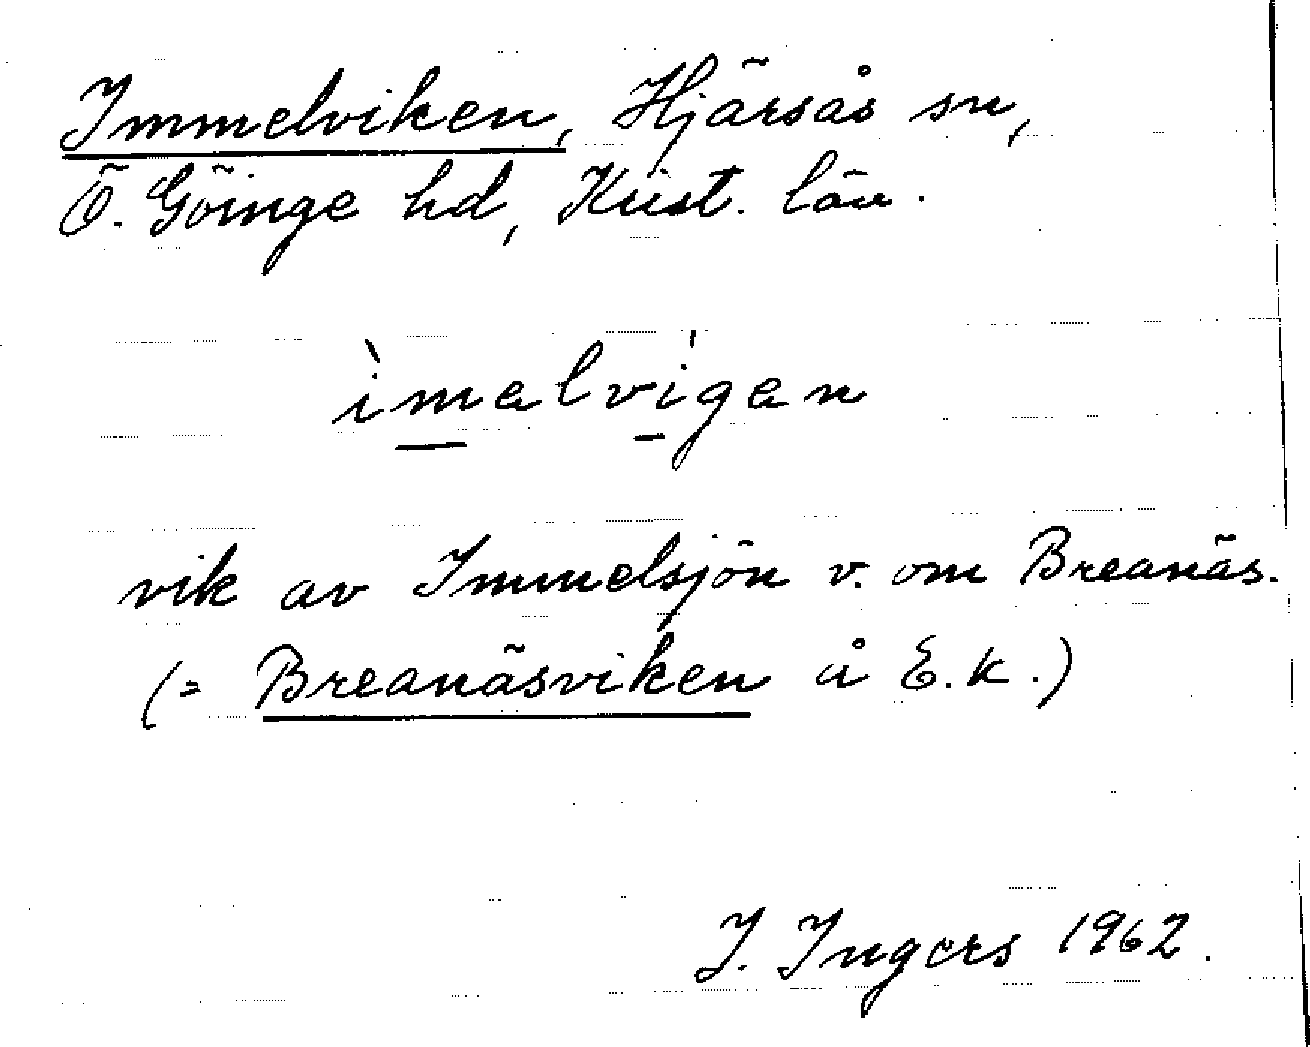 Immelviken, Hjärsås sn,
Ö. Göinge hd, Krist. län.
ìmalvígan
vik av Immelsjön v. om Breanäs.
(= Breanäsviken å E.K.)
I. Ingers 1962.